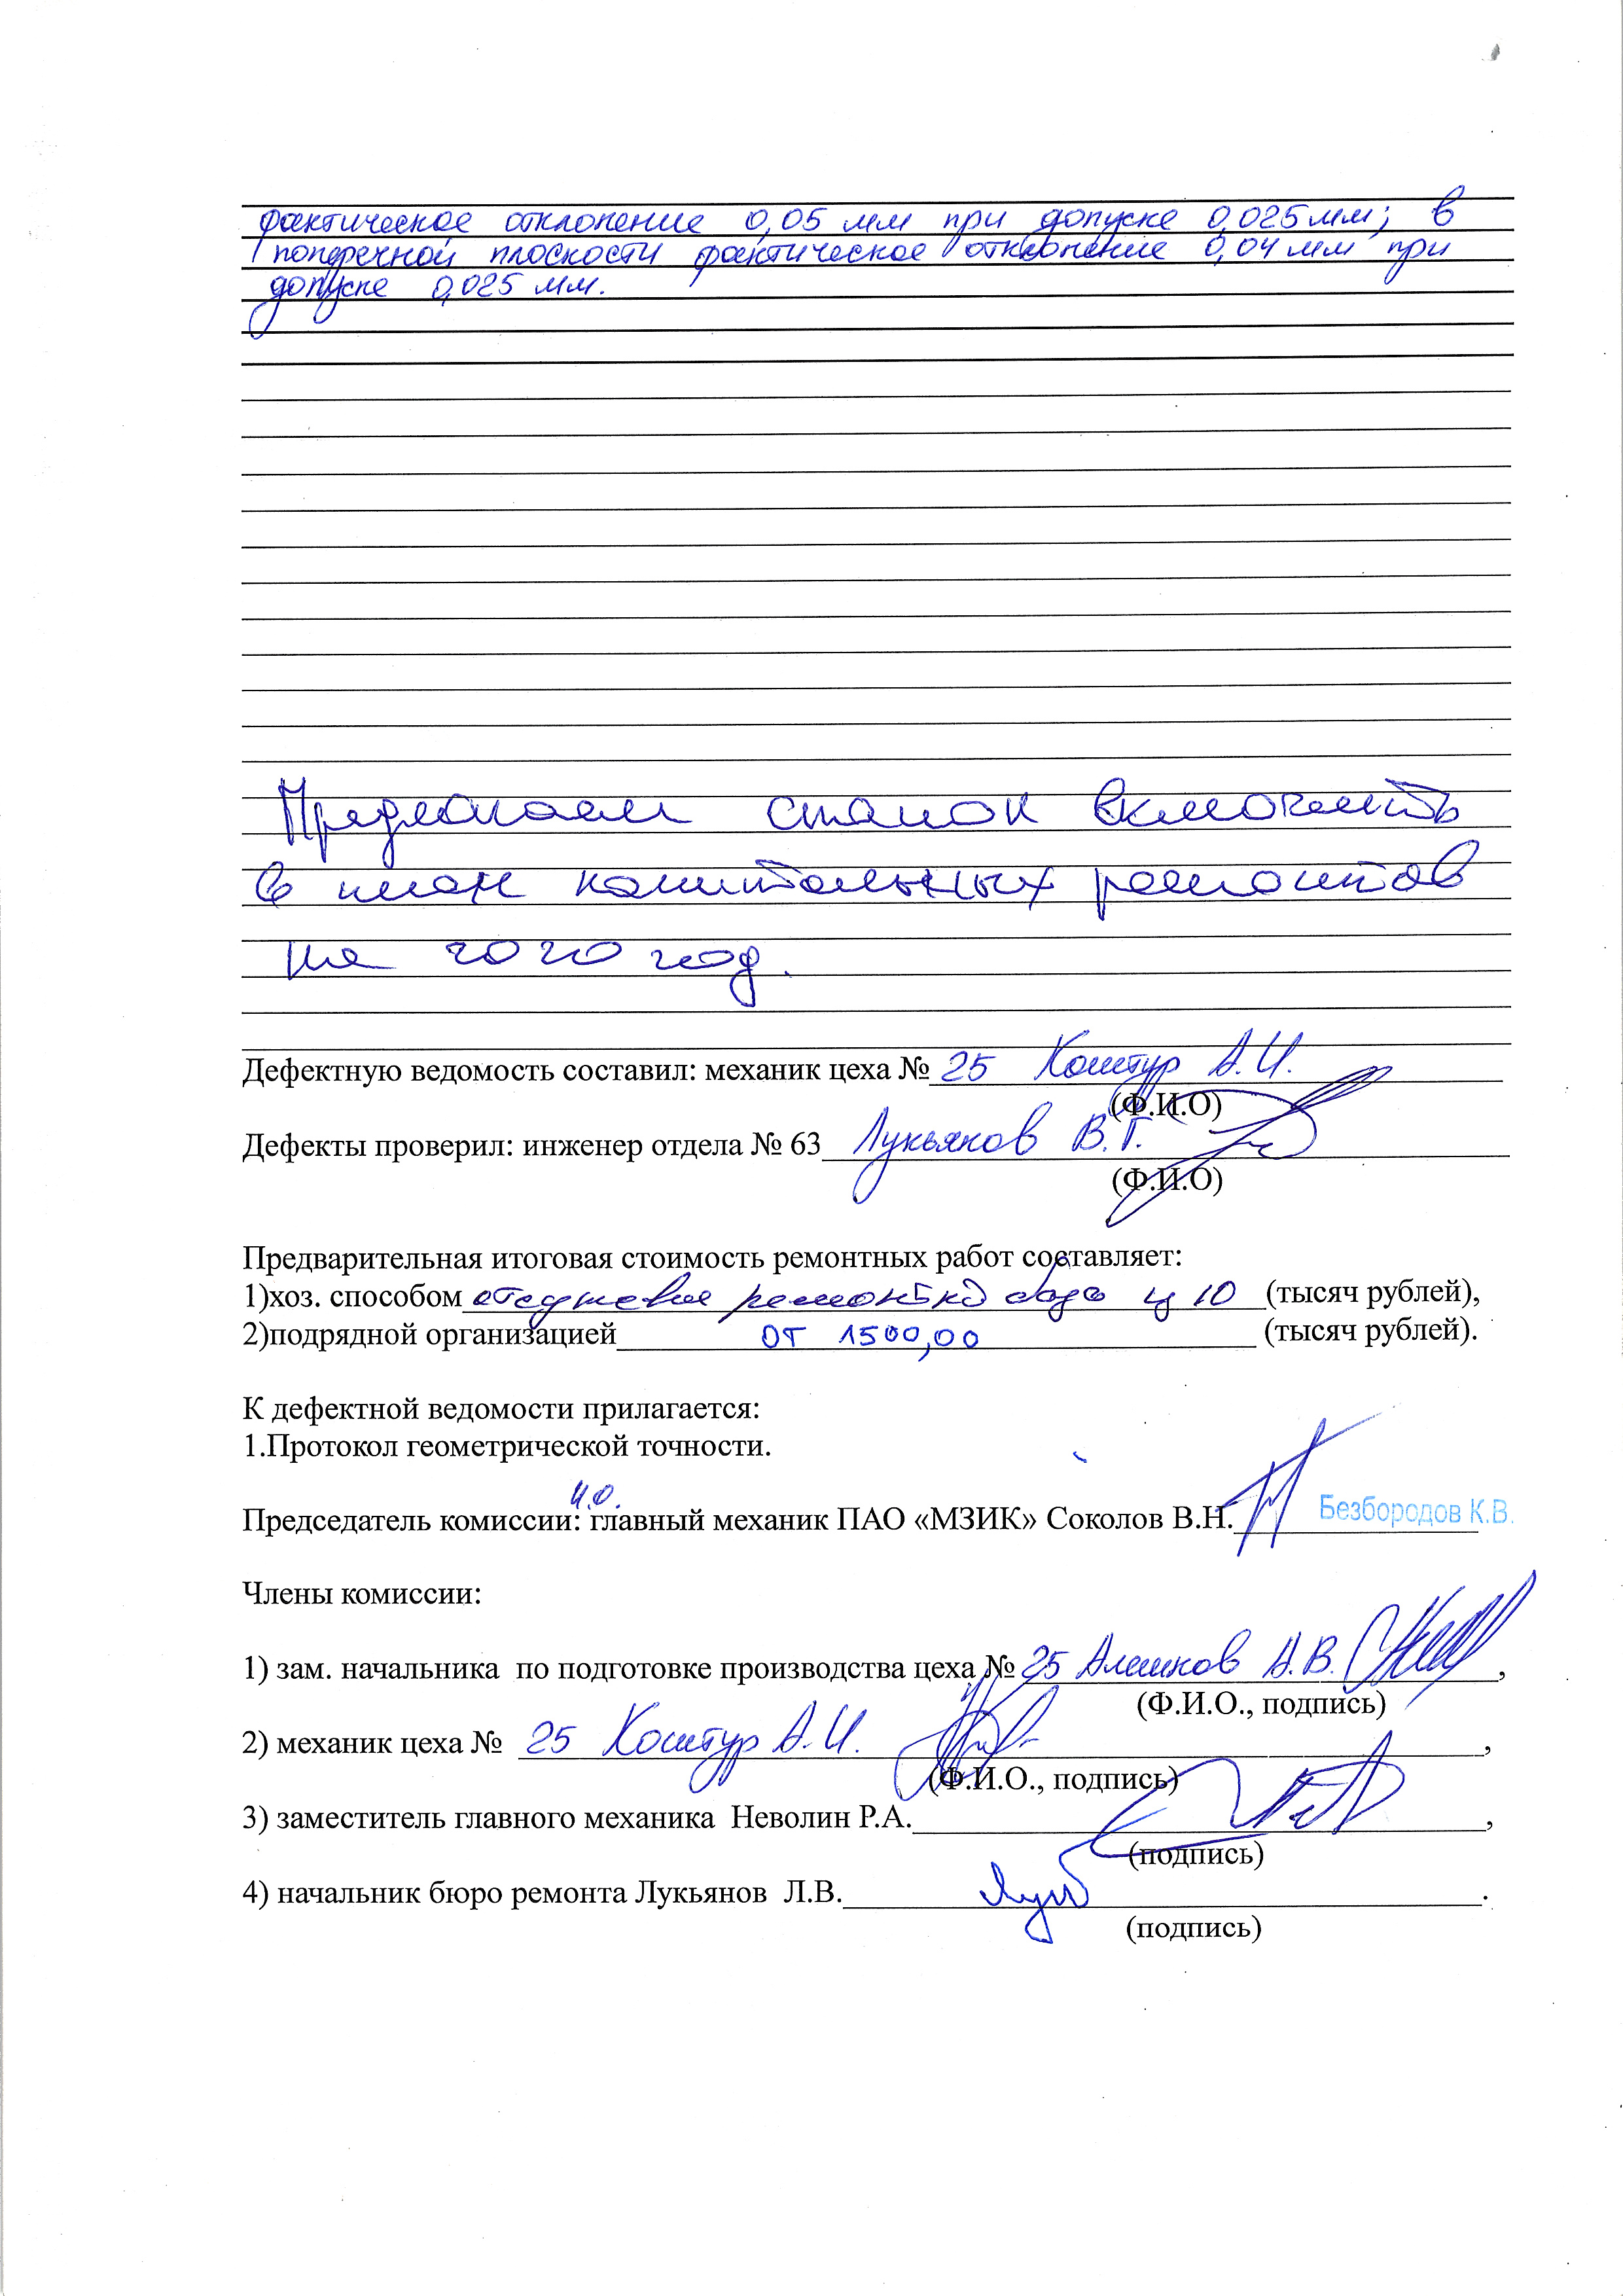 фактическое отклонение 0,05 мм при допуске 0,025мм; в
поперечной плоскости фактическое отклонение 0,04 мм при
допуске 0,025 мм.
Предлагаем станок включить
в план капитальных ремонтов
на 2020 год.
Дефектную ведомость составил: механик цеха № 25 Коштур А.И.
(Ф.И.О)
Дефекты проверил: инженер отдела № 63 Лукьянов В.Г.
(Ф.И.О)
Предварительная итоговая стоимость ремонтных работ составляет:
1)хоз. способом ц 10 (тысяч рублей),
2)подрядной организацией от 1500,00 (тысяч рублей).
К дефектной ведомости прилагается:
1.Протокол геометрической точности.
И.О.
Председатель комиссии: главный механик ПАО «МЗИК» Соколов В.Н. Безбородов К.В.
Члены комиссии:
1) зам. начальника по подготовке производства цеха № 25 Алешков А.В.,
(Ф.И.О., подпись)
2) механик цеха № 25 Коштур А.И.,
(Ф.И.О., подпись)
3) заместитель главного механика Неволин Р.А.,
(подпись)
4) начальник бюро ремонта Лукьянов Л.В.
(подпись)